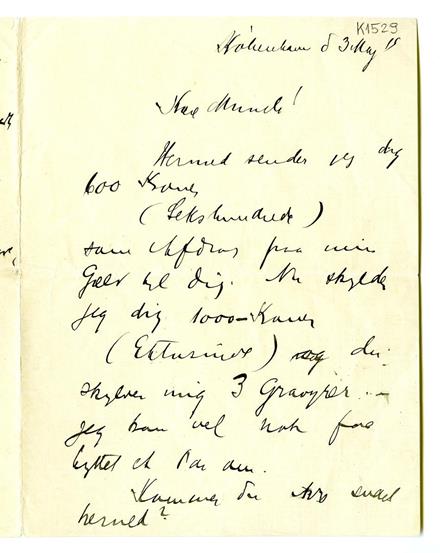 K1529
København d 3 Maj 15
Kære Munch!
Hermed sender jeg dig
600 Kroner
(Sekshundrede)
som Afdrag paa min
Gæld til dig. Nu skylder
jeg dig 1000 Kroner
(Ettusinde) og du
skylder mig 3 Gravyrer –
jeg kan vel nok faa
byttet et Par om.
Kommer du ikke snart
herned?